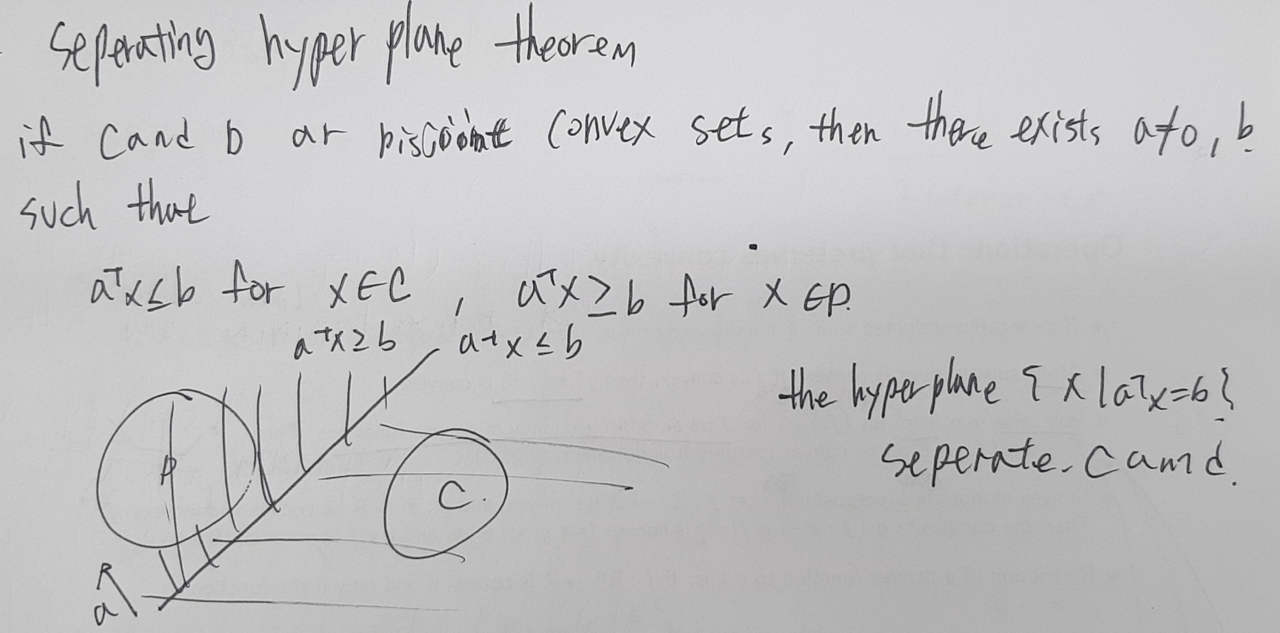 Seperating hyper plane theorem
if C and D ar Discoint convex sets, then there exists a≠0, b
such that
aᵀx≤b for x∈C , aᵀx≥b for x∈D.
aᵀx≥b aᵀx≤b
the hyperplane {x|aᵀx=b}
seperate. C and d.
D
C.
a